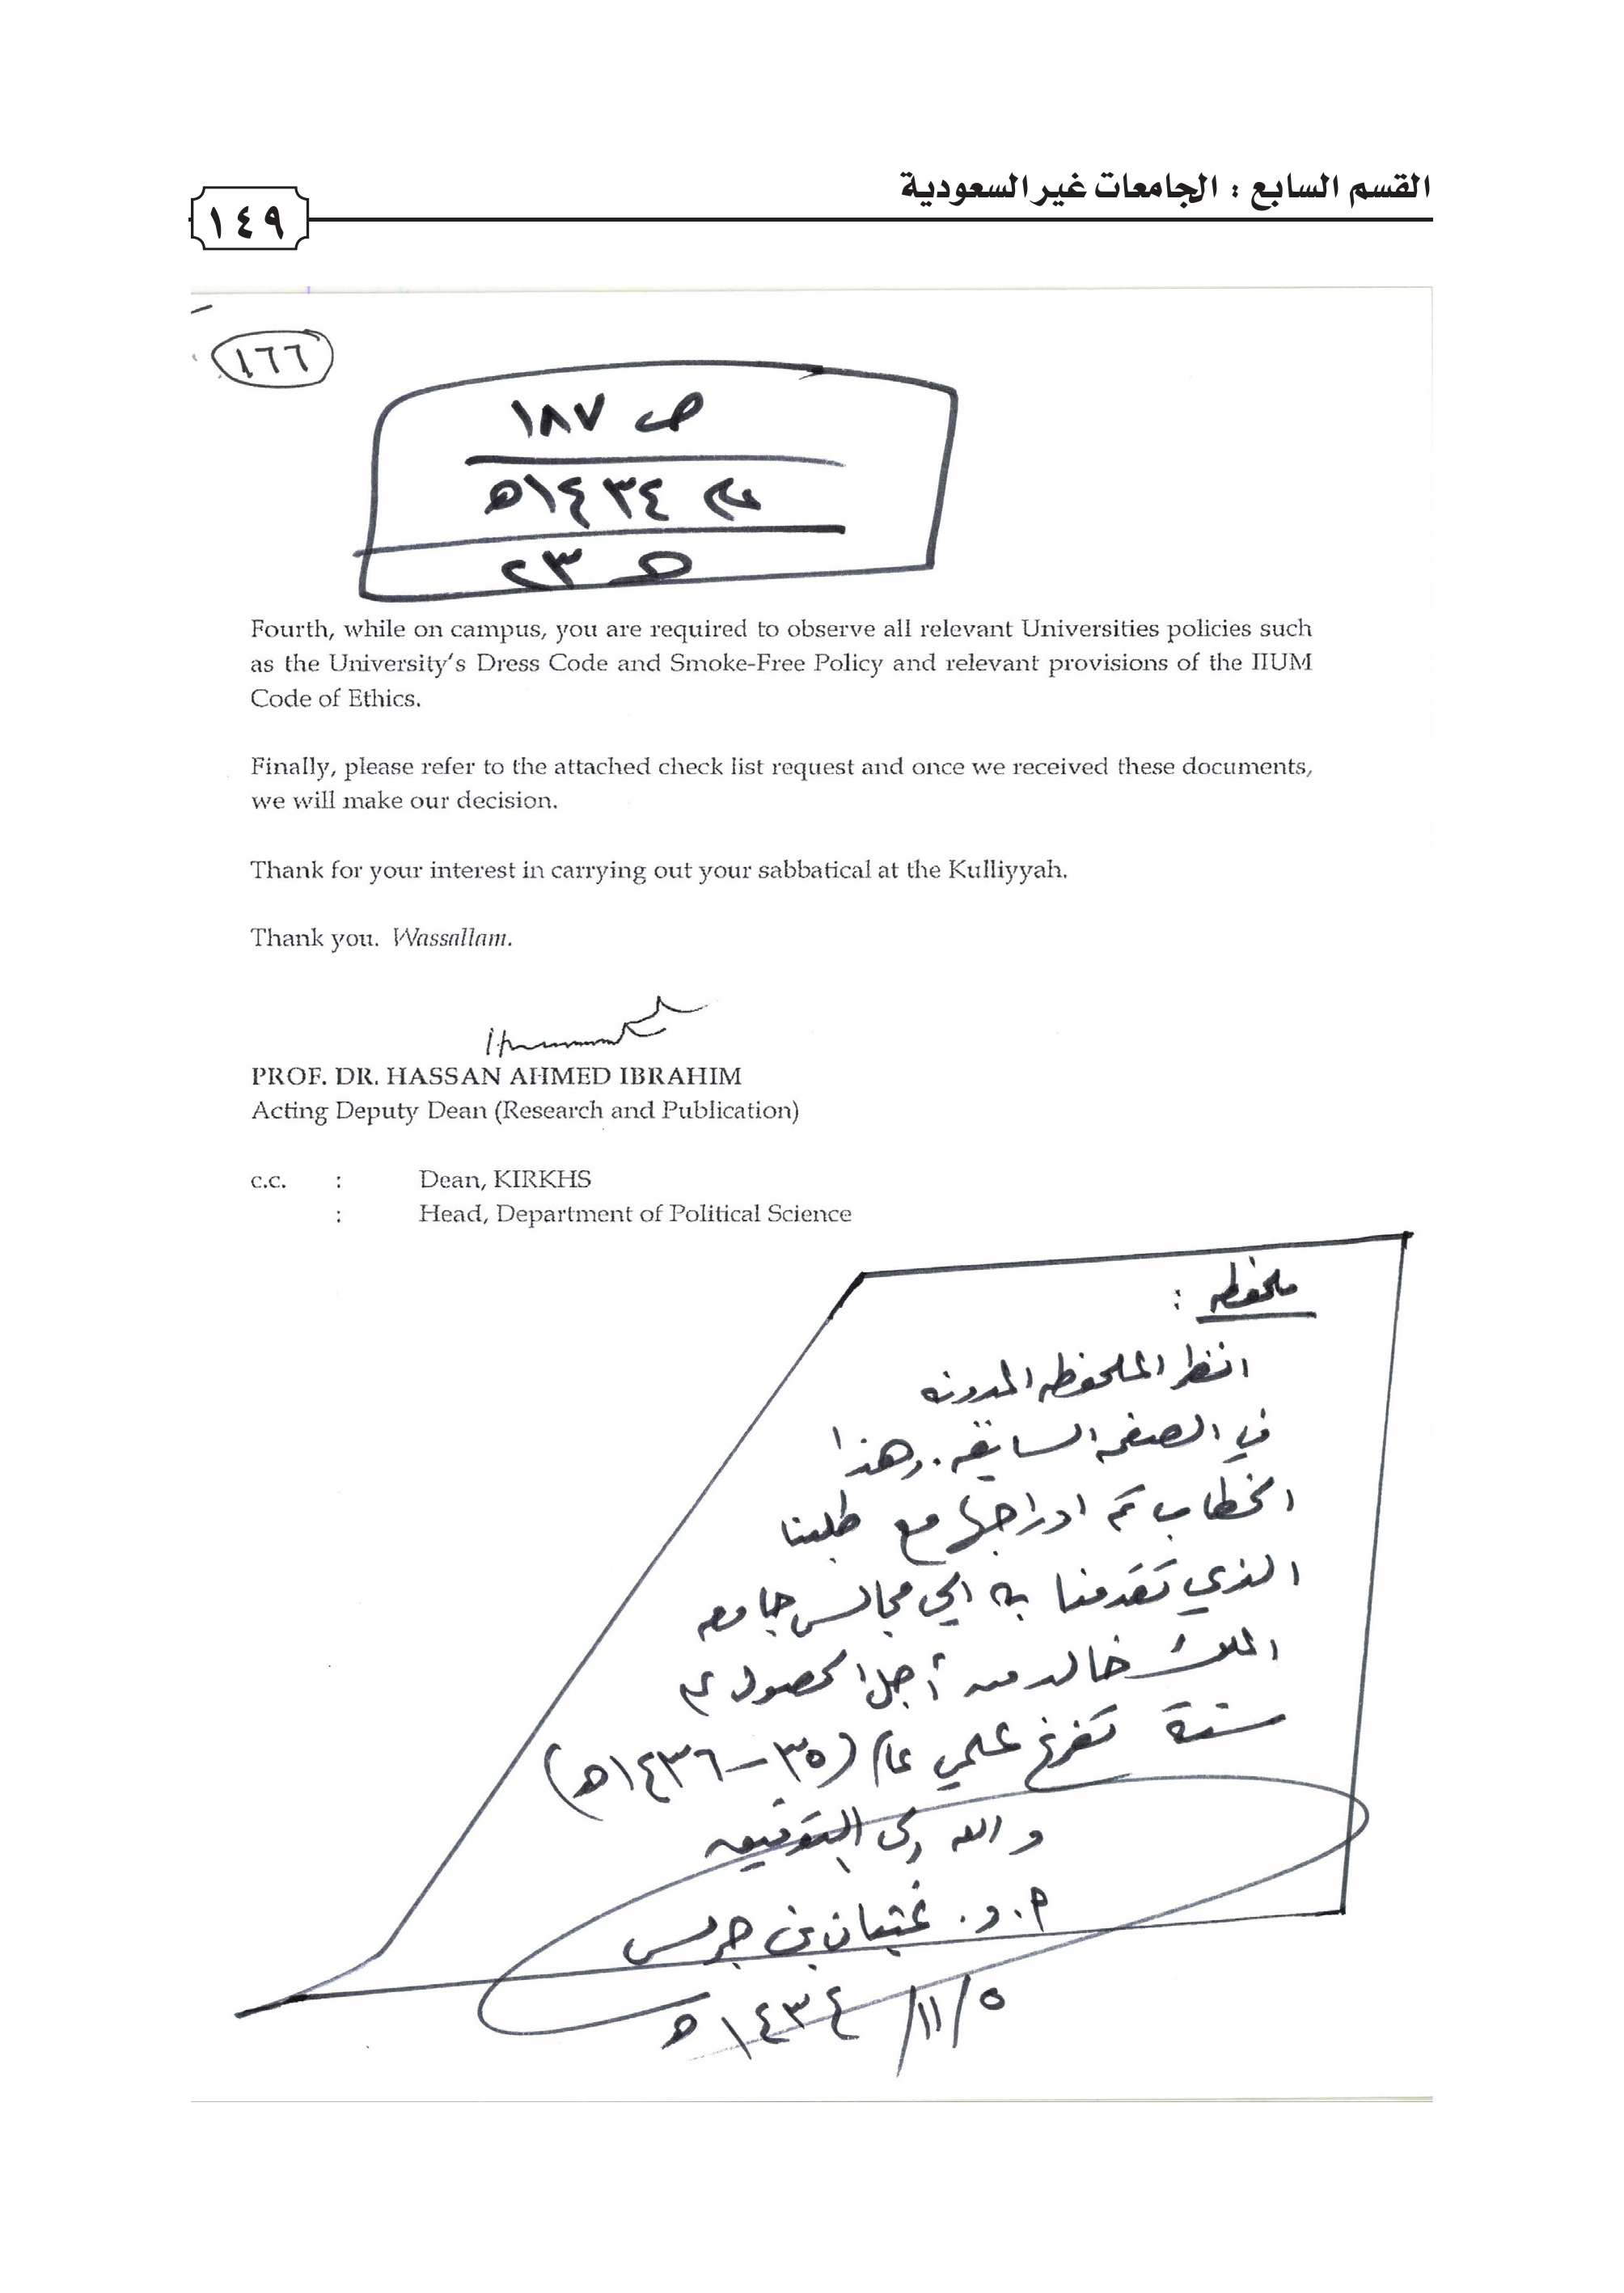 القسم السابع : الجامعات غير السعودية
١٤٩
١٦٦
ص ١٨٧
١٤٣٤هـ
٢٣
Fourth, while on campus, you are required to observe all relevant Universities policies such
as the University's Dress Code and Smoke-Free Policy and relevant provisions of the IIUM
Code of Ethics.
Finally, please refer to the attached check list request and once we received these documents,
we will make our decision.
Thank for your interest in carrying out your sabbatical at the Kulliyyah.
Thank you. Wassallam.
PROF. DR. HASSAN AHMED IBRAHIM
Acting Deputy Dean (Research and Publication)
c.c. : Dean, KIRKHS
: Head, Department of Political Science
ملحظه :
انظر الملحظه المدونه
في الصفحه السابقه. وهذا
الخطاب تم ادراجها مع طلبنا
الذي تقدمنا به الى مجالس جامعه
الملك خالد من أجل الحصول على
سنة تفرغ علمي عام (٣٥–١٤٣٦هـ)
والله ولى التوفيق
أ.د. غيثان بن جريس
٥/١١/١٤٣٤هـ